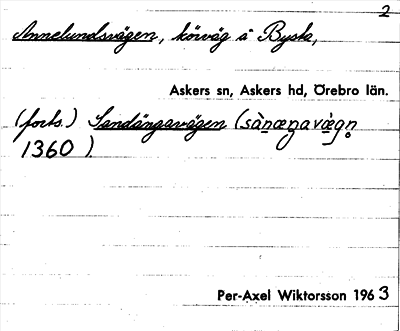 2
Annelundsvägen, körväg å Bysta,
Askers sn, Askers hd, Örebro län.
(forts.) Sandängavägen (sànæŋavæ̀gn̥
1360).
Per-Axel Wiktorsson 1963